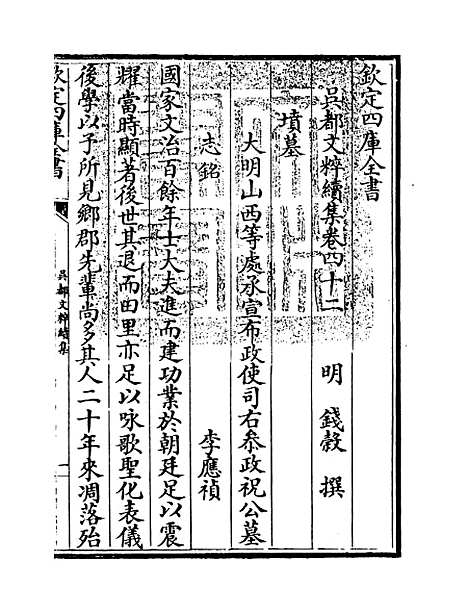 欽定四庫全書
吳都文粹續集卷四十二
明 錢榖 撰
墳墓
大明山西等處承宣布政使司右叅政祝公墓
志銘
李應禎
國家文治百餘年士大夫進而建功業於朝廷足以震
耀當時顯著後世其退而田里亦足以咏歌聖化表儀
後學以予所見鄉郡先輩尚多其人二十年來凋落殆
欽定四庫全書
吳都文粹續集
一